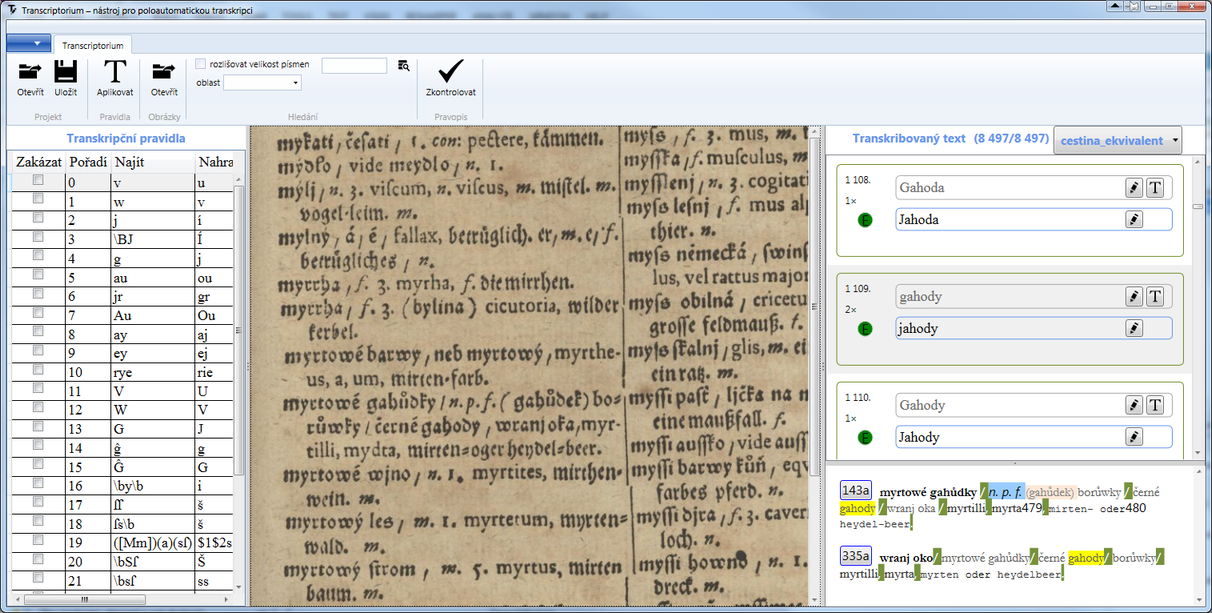 Transcriptorium – nástroj pro poloautomatickou transkripci
Transcriptorium
Otevřít
Uložit
Projekt
Aplikovat
Pravidla
Otevřít
Obrázky
rozlišovat velikost písmen
oblast
Hledání
Zkontrolovat
Pravopis
Transkripční pravidla
Zakázat Pořadí Najít Nahra
0 v u
1 w v
2 j í
3 \BJ Í
4 g j
5 au ou
6 jr gr
7 Au Ou
8 ay aj
9 ey ej
10 rye rie
11 V U
12 W V
13 G J
14 ĝ g
15 Ĝ G
16 \by\b i
17 ſſ š
18 ſs\b š
19 ([Mm])(a)(sſ) $1$2s
20 \bSſ Š
21 \bsſ ss
mykati, čeſati, 1. con: pectere, kämmen.
mýdlo, vide meydlo, n. 1.
mýlj, n. 3. viſcum, n. viſcus, m. miſtel. m.
vogel-leim. m.
mylný, á, é, fallax, betrüglich. er, m. e, f.
betrügliches, n.
myrrha, f. 3. myrha, f. die mirrhen.
myrrha, f. 3. (bylina) cicutoria, wilder
kerbel.
myrtowé barwy, neb myrtowý, myrthe-
us, a, um, mirten-farb.
myrtowé gahůdky / n. p. f. (gahůdek) bo-
růwky / černé gahody, wranj oka, myr-
tilli, mydta, mirten=oger heydel=beer.
myrtowé wjno, n. 1. myrtites, mirthen-
wein. m.
myrtowý les, m. 1. myrtetum, myrten=
wald. m.
myrtowý ſtrom, m. 5. myrtus, mirten
baum. m.
myſs, f. 3. mus, m.
myſſka, f. muſculus, m
myſſlenj, n. 3. cogitati
myſs leſnj, f. mus alp
thier. n.
myſs německá, ſwinſ
lus, vel rattus major
myſs obilná, cricetu
groſſe feldmauß. f.
myſs ſkalnj, glis, m. ei
ein ratz. m.
myſſi paſt, ljčka na m
eine maußfall. f.
myſſi auſſko, vide auſſ
myſſi barwy kůň, eqv
farbes pferd. n.
myſſi djra, f. 3. caver
loch. n.
myſſi howno, n. 1.
dreck. m.
Transkribovaný text (8 497/8 497) cestina_ekvivalent
1 108.
1×
E
Gahoda
T
Jahoda
1 109.
2×
E
gahody
T
jahody
1 110.
1×
E
Gahody
T
Jahody
143a myrtowé gahůdky / n. p. f. (gahůdek) borůwky / černé
gahody / wranj oka / myrtilli, myrta479, mirten- oder480
heydel-beer.
335a wranj oko / myrtowé gahůdky / černé gahody / borůwky /
myrtilli, myrta, myrten oder heydelbeer.